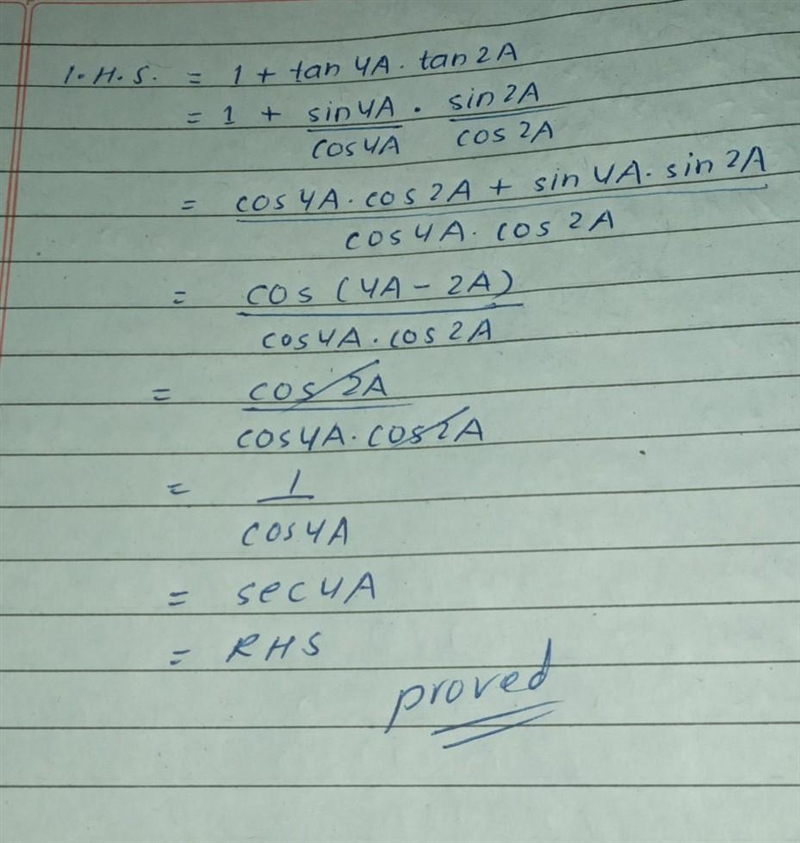 L.H.S. = 1 + tan 4A · tan 2A
= 1 + sin 4A / cos 4A · sin 2A / cos 2A
= cos 4A · cos 2A + sin 4A · sin 2A / cos 4A · cos 2A
= cos (4A - 2A) / cos 4A · cos 2A
= cos 2A / cos 4A · cos 2A
= 1 / cos 4A
= sec 4A
= RHS
proved